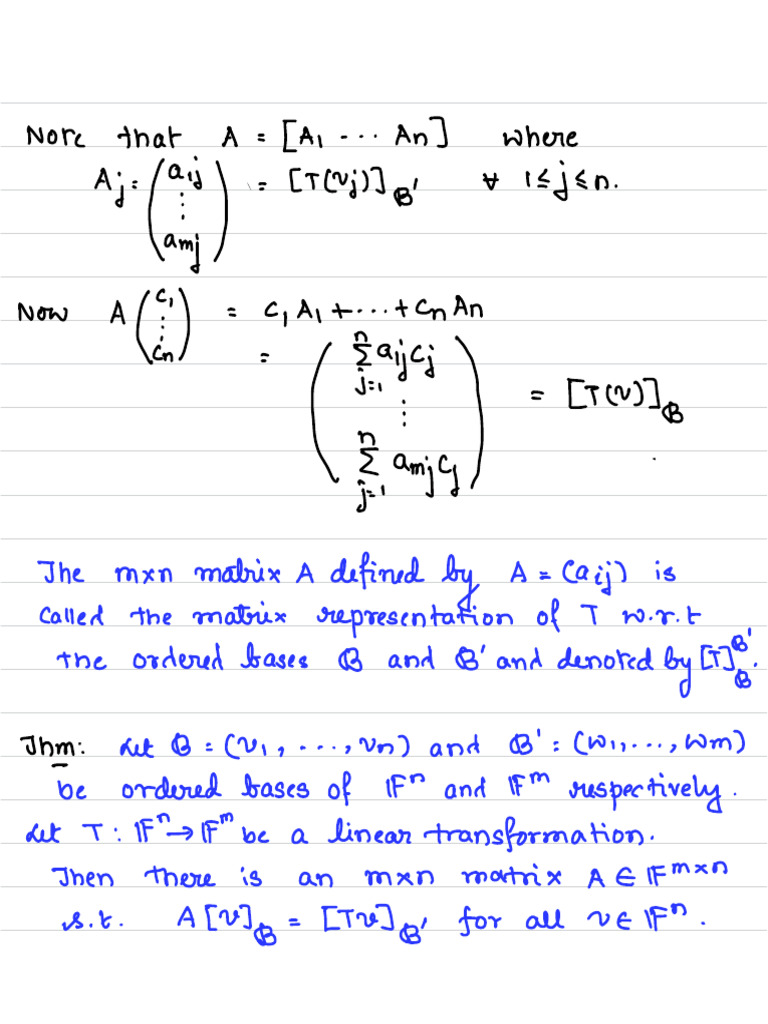 Note that A = [A₁ --- Aₙ] where
Aⱼ = (a₁ⱼ ⋮ aₘⱼ) = [T(vⱼ)]_B' ∀ 1≤j≤n.
Now A (c₁ ⋮ cₙ) = c₁A₁ + ... + cₙAₙ
= (∑_{j=1}^{n} a₁ⱼcⱼ ⋮ ∑_{j=1}^{n} aₘⱼcⱼ) = [T(v)]_B
The m×n matrix A defined by A = (aᵢⱼ) is
called the matrix representation of T w.r.t
the ordered bases B and B' and denoted by [T]_B^B'.
Thm: Let B = (v₁, ..., vₙ) and B' = (w₁, ..., wₘ)
be ordered bases of 𝔽ⁿ and 𝔽ᵐ respectively.
Let T : 𝔽ⁿ → 𝔽ᵐ be a linear transformation.
Then there is an m×n matrix A ∈ 𝔽^{m×n}
s.t. A[v]_B = [Tv]_B' for all v ∈ 𝔽ⁿ.